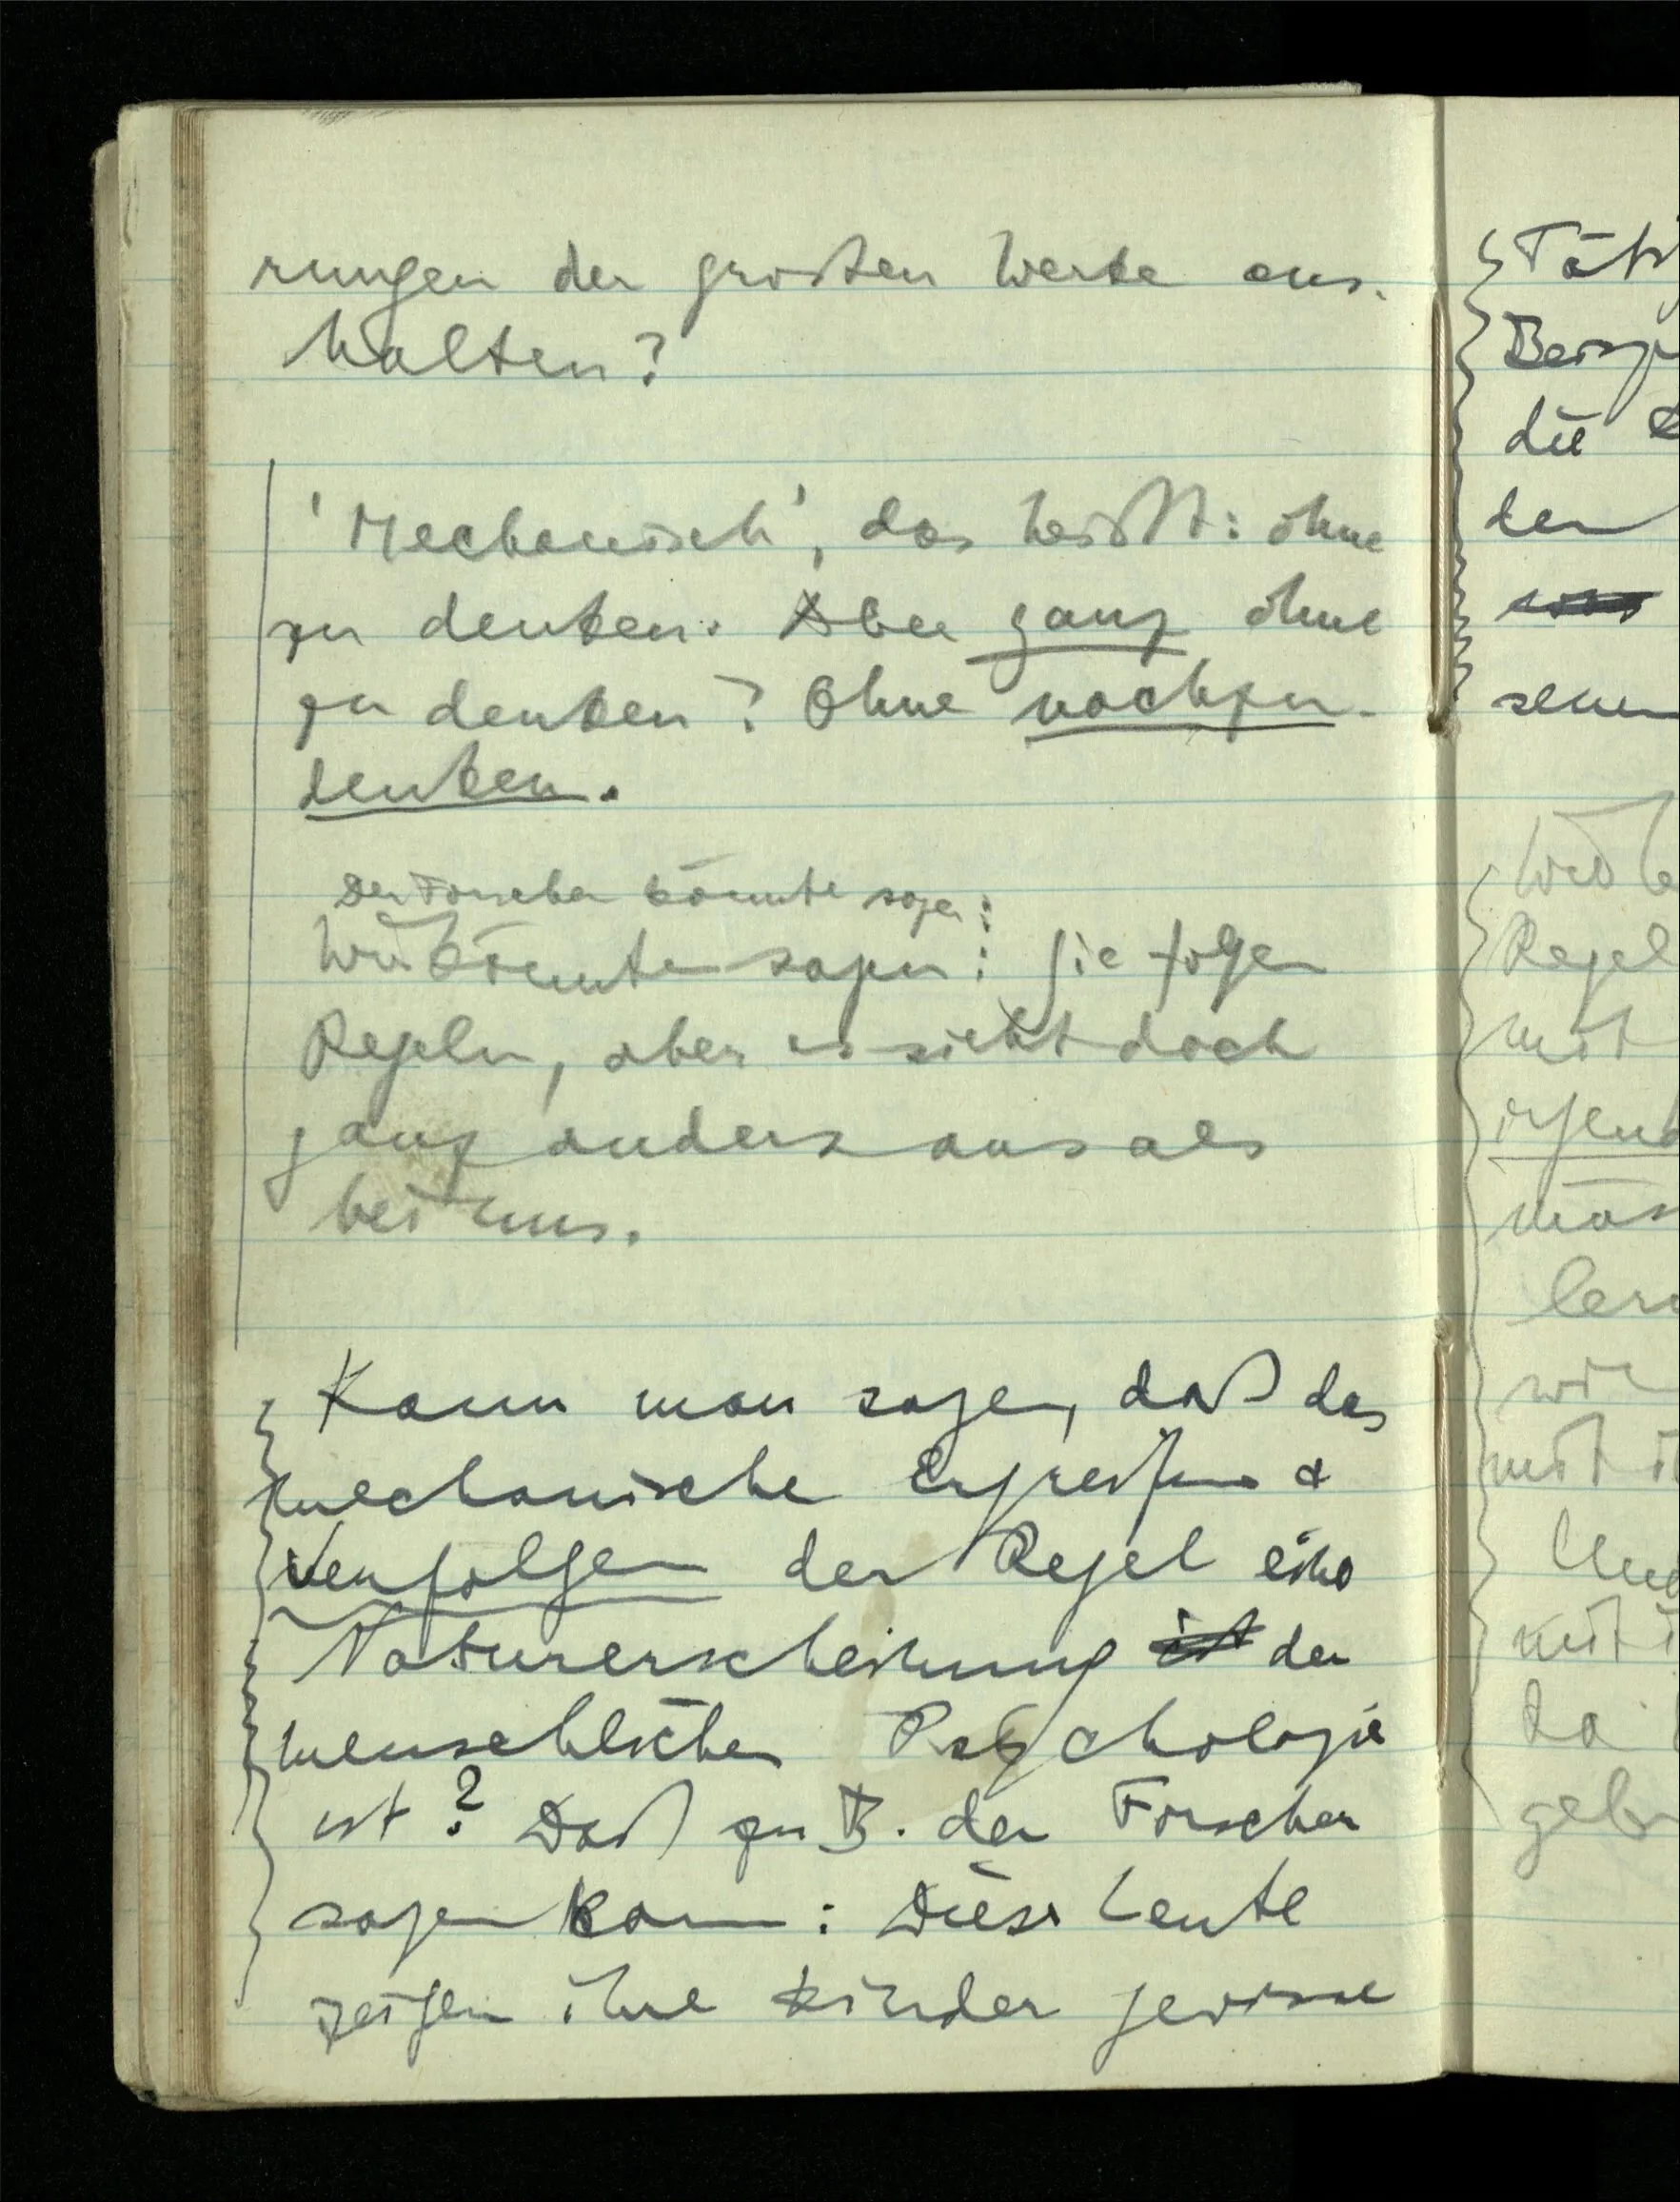 rungen der großen Werke aus-
halten?
'Mechanisch', das heißt: ohne
zu denken. Aber ganz ohne
zu denken? Ohne nachzu-
denken.
Der Forscher könnte sagen:
Wir könnten sagen: sie folgen
Regeln, aber es sieht doch
ganz anders aus als
bei uns.
Kann man sagen, daß das
mechanische Ergreifen &
Verfolgen der Regel eine
Naturerscheinung ist der
menschlichen Psychologie
ist? Daß zu B. der Forscher
sagen kann: Diese Leute
zeigen ihre Kinder gewisse
Tät
Beisp
die
den
seinen
Regel
mit
irgend
wie
mit
mit
da